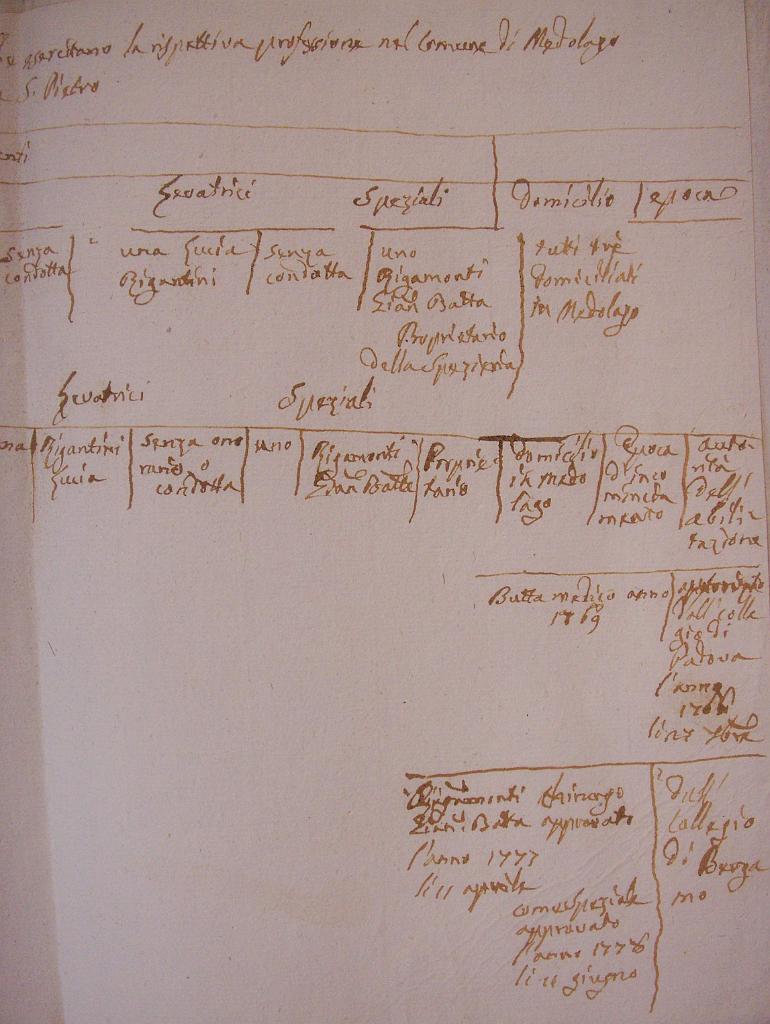 esercitano la rispettiva professione nel Comune di Medolago
S. Pietro
enti
Levatrici Speziali domicilio epoca
senza condotta
una Lucia Rigantini
senza condotta
uno
Rigamonti
Gian Batta
Proprietario
della Spezieria
tutti trè
domiciliati
in Medolago
Levatrici Speziali
una
Rigantini
Lucia
senza ono
rario o
condotta
uno
Rigamonti
Gian Batta
Proprie
tario
domicilio
in Medo
lago
Epoca
d'inco
mincia
mento
auto
rità
dell'
abili
tazione
Butta medico anno
1769
approvato
dall colle
gio di
Padova
l'anno
1766
li 27 7bre
Rigamonti chirurgo
Gian Batta approvato
l'anno 1777
li 11 aprile
come speziale
approvato
l'anno 1776
li 11 giugno
dall'
Collegio
di Berga
mo